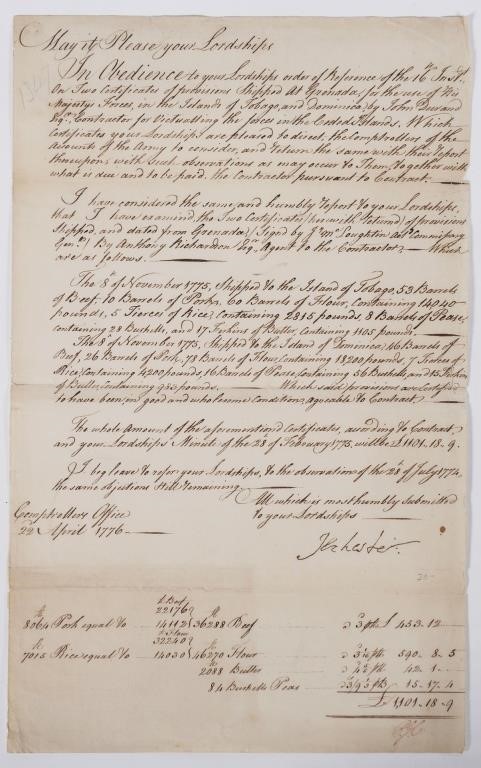 May it Please your Lordships
In Obedience to your Lordships order of Reference of the 16th Inst.
On Two Certificates of provisions Shipped At Grenada, for the use of His
Majestys Forces, in the Islands of Tobago, and Dominica, by John Durand
Esqr. Contractor for Victualling the forces in the Ceded Islands. Which
Certificates your Lordships are pleased to direct, the Comptrollers of the
Accounts of the Army to consider, and return the same with their Report
thereupon, with such observations as may occur to Them, together with
what is due and to be paid, the Contractor pursuant to Contract.
I have considered the same, and humbly Report to your Lordships,
that I have examined, the Two Certificates (herewith returned) of provisions
Shipped, and dated from Grenada, (Signed by Js. McLoughlin Act. Commissary
Genl.) By Anthony Richardson Esqr. Agent to the Contractor Which
are as follows.
The 8th of November 1775, Shipped to the Island of Tobago, 53 Barrels
of Beef, 10 Barrels of Pork, 60 Barrels of Flour, containing 14040
pounds, 5 Tierces of Rice, containing 2815 pounds, 8 Barrels of Pease,
containing 28 Bushells, and 17 Firkins of Butter, Containing 1105 pounds.
The 8th of November 1775, Shipped to the Island of Dominica, 46 Barrels of
Beef, 26 Barrels of Pork, 78 Barrels of Flour, Containing 18200 pounds, 7 Tierces of
Rice, containing 4200 pounds, 16 Barrels of Pease, Containing 56 Bushells, and 15 Firkins
of Butter, Containing 983 pounds. Which said provisions are Certified
to have been, in good and wholesome Condition, agreeable to Contract.
The whole Amount of the aforementioned Certificates, according to Contract
and your Lordships Minute of the 28 of February 1775, will be £1101.18-9.
I beg leave to refer your Lordships, to the observation of the 28th of July 1774,
the same objections Still remaining.
All which is most humbly Submitted
to your Lordships
Comptrollers Office
22 April 1776
lb Beef
22176
8064 Pork equal to 14112 36288 Beef 453-12
lb Flour
32240
7015 Rice equal to 14030 46270 Flour 590-8-5
2088 Butter 42-1-
84 Bushells Peas 15-17-4
£1,101-18-9